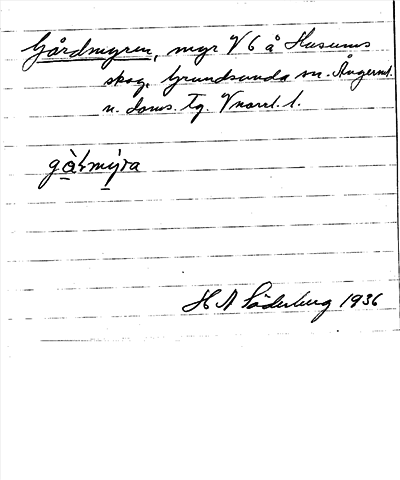 Gårdmyren, myr V 6 å Husums
skog, Grundsunda sn. Ångerml.
n. doms. Tg. Vnorrl. l.
gàꞎmýra
H A Söderberg 1936